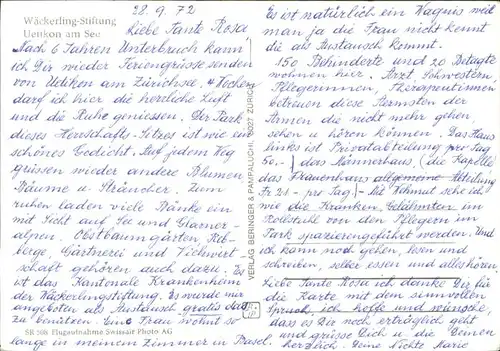 Wäckerling-Stiftung
Uetikon am See
28.9.72
Liebe Tante Rosa
Nach 6 Jahren Unterbruch kann
ich Dir wieder Feriengrüsse senden
von Uetikon am Zürichsee. 4 Wochen
darf ich hier die herrliche Luft
und die Ruhe geniessen. Der Park
dieses Herrschafts-Sitzes ist wie ein
schönes Gedicht. Auf jedem Weg
grüssen wieder andere Blumen
Bäume u. Sträucher. Zum
ruhen laden viele Bänke ein
mit Sicht auf See und Glarner-
alpen. Obstbaumgärten, Reb-
berge, Gärtnerei und Viehwirt-
schaft gehören auch dazu. Es
ist das Kantonale Krankenheim
der Wäckerlingstiftung. Es wurde mir
angeboten als Austausch gratis das
zu benützen. Eine Frau wohnt so
lange in meinem Zimmer in Basel.
SR 508 Flugaufnahme Swissair Photo AG
VERLAG BERINGER & PAMPALUCHI, 8027 ZÜRICH
Es ist natürlich ein Wagnis weil
man ja die Frau nicht kennt
die als Austausch kommt.
150 Behinderte und 20 Betagte
wohnen hier. Arzt, Schwestern
Pflegerinnen, Therapeutinnen
betreuen diese Aermsten der
Armen die nicht mehr gehen,
sehen u. hören können. Das Haus
links ist Privatabteilung pro Tag
50.- / das Männerhaus / die Kapelle
das Frauenhaus allgemeine Abteilung
Fr. 21.- pro Tag / Mit Wehmut sehe ich
wie die Kranken Gelähmten im
Rollstuhl von den Pflegern im
Park spazierengeführt werden. Und
ich kann noch gehen, lesen und
schreiben, selber essen und alles hören.
Liebe Tante Rosa ich danke Dir für
die Karte mit dem sinnvollen
Spruch, ich hoffe und wünsche,
dass es Dir noch erträglich geht
und grüsse Dich u. die Deinen
herzlich. Deine Nichte Marie